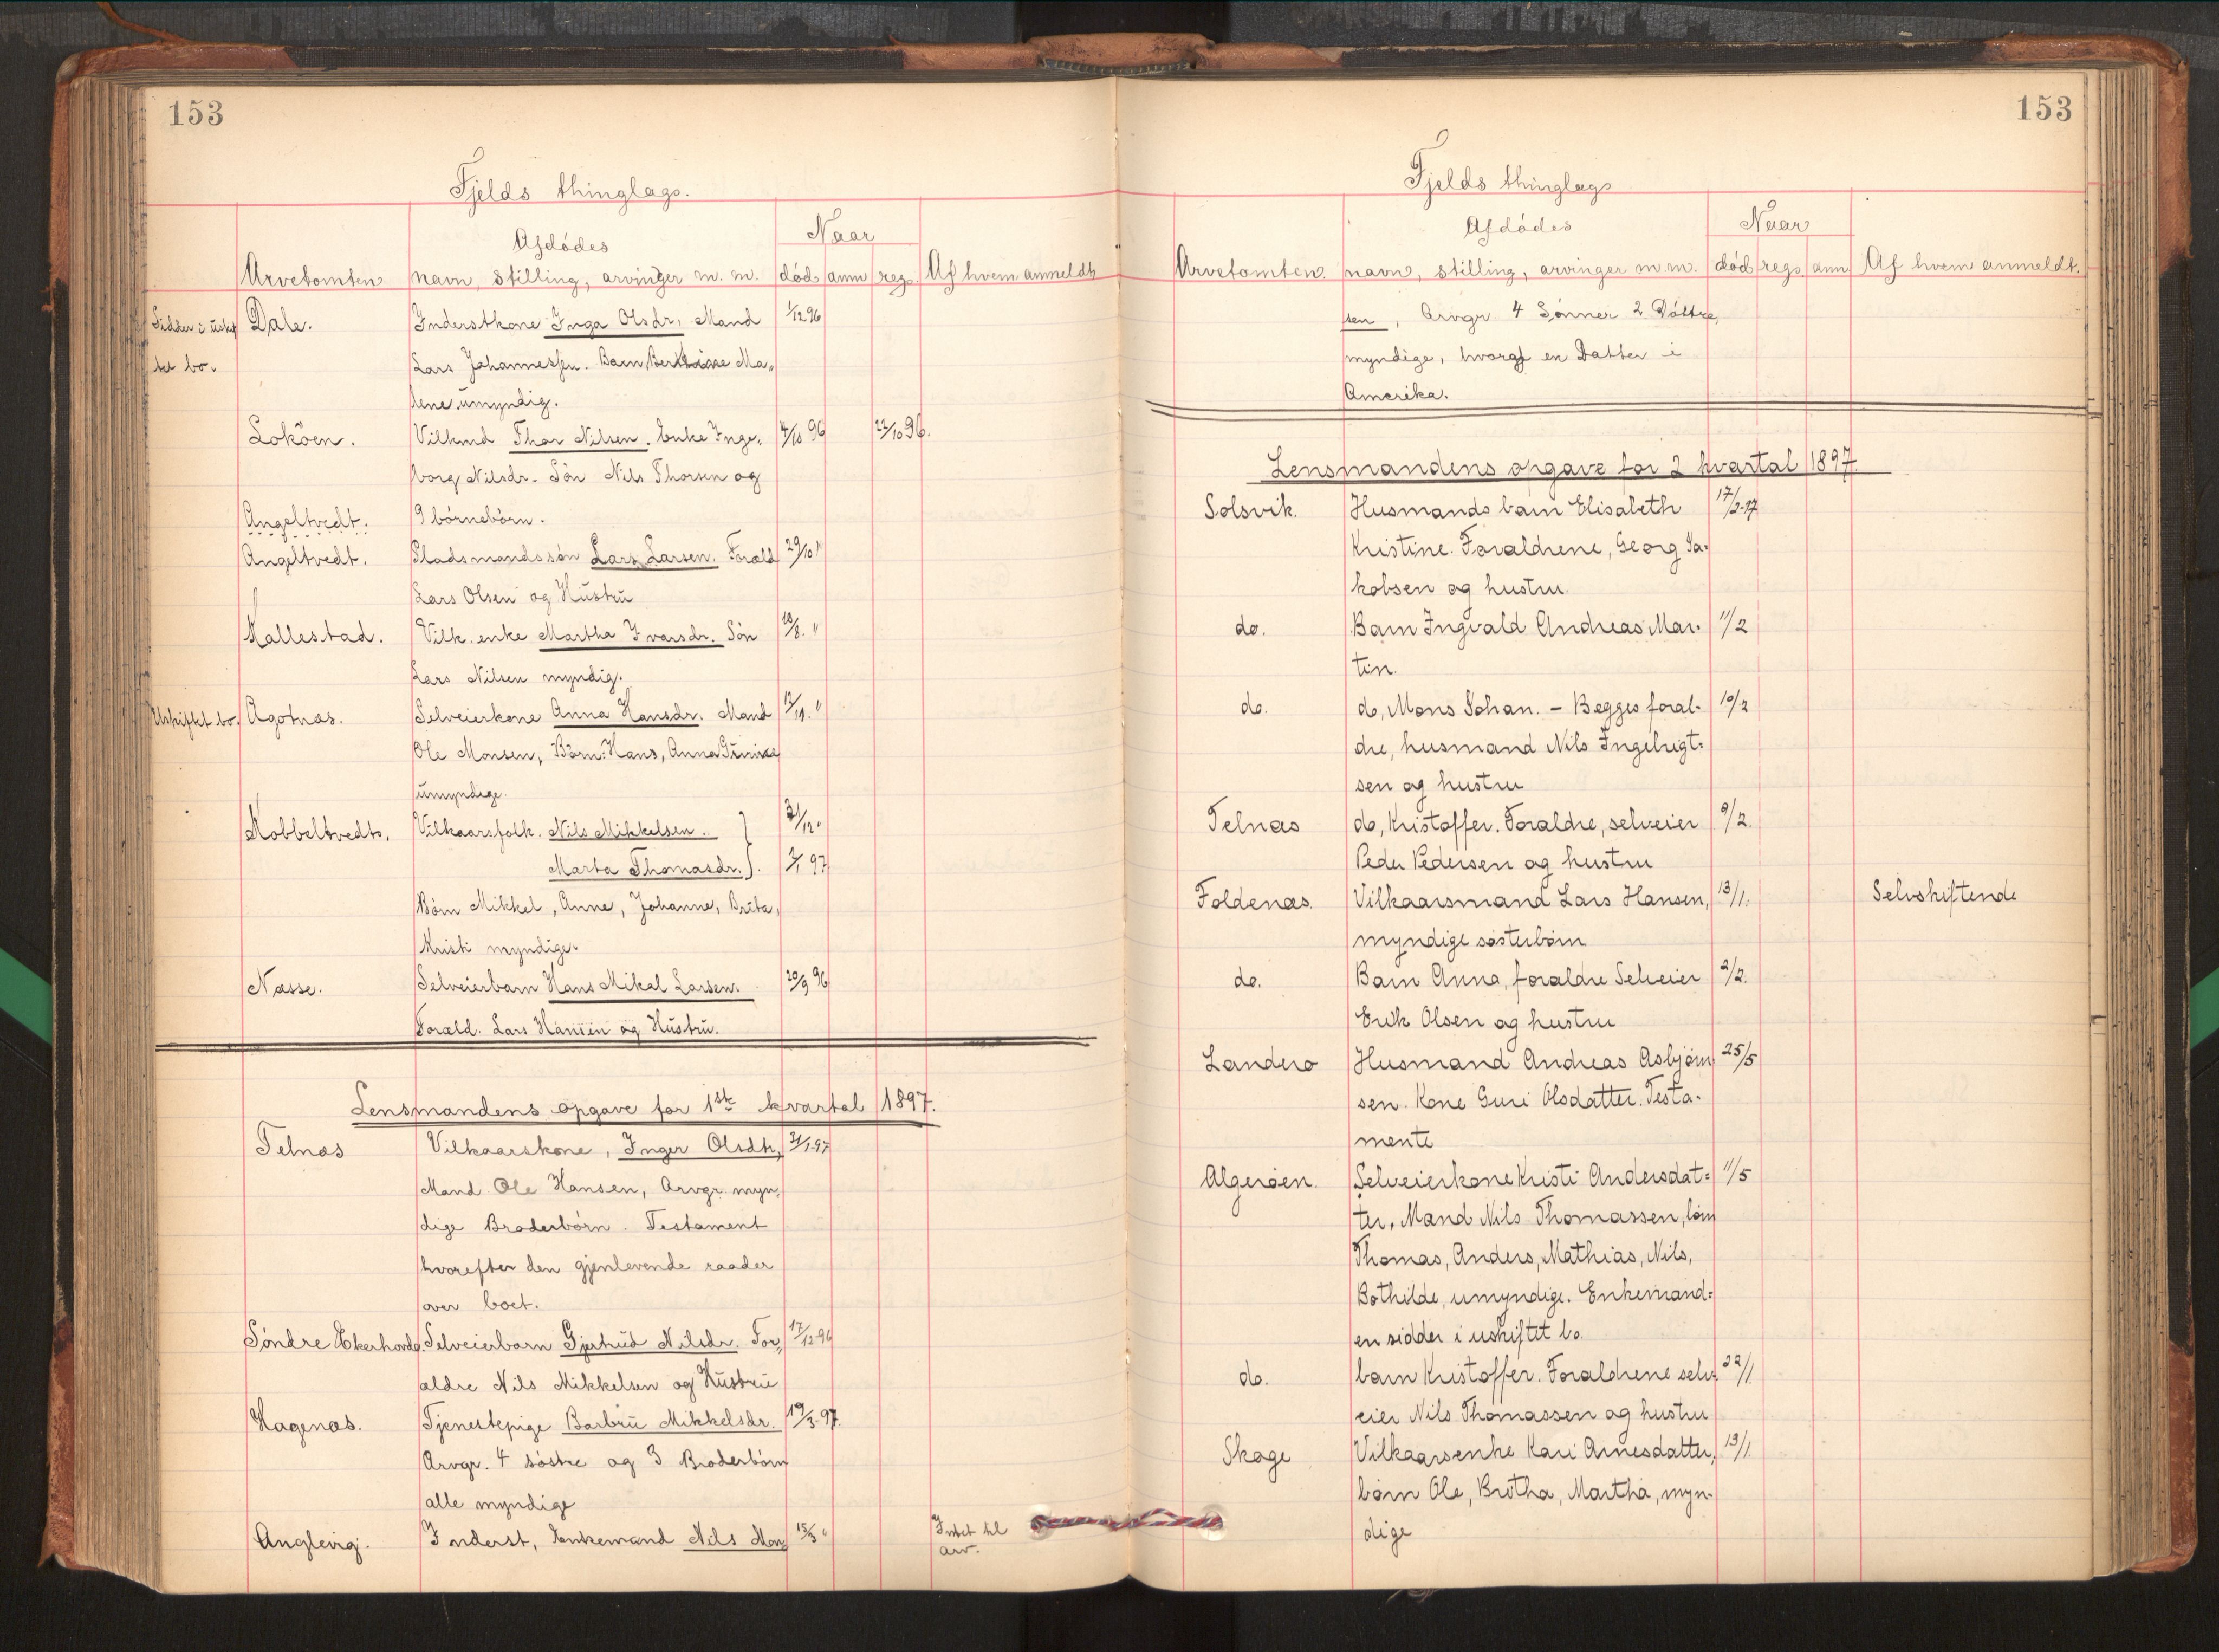 153
Fjelds thinglags.
Afdödes
Naar
Arvetomten navn, stilling, arvinger m. m. död anm reg. Af hvem anmeldt
Sidder i uskif Dale. Inderstkone Inga Olsdr, Mand 1/12 96
tet bo. Lars Johannessen. Barn Ma„
lene umyndig.
Loköen. Vilkmd Thor Nilsen. Enke Inge„ 4/10 96 22/10 96.
borg Nilsdr. Sön Nils Thorsen og
Angeltvedt. 9 börnebörn.
Angeltvedt. Pladsmandssön Lars Larsen. Foræld 29/10 "
Lars Olsen og Hustru
Kallestad. Vilk. enke Martha Ivarsdr. Sön 10/8. "
Lars Nilsen myndig.
Uskiftet bo. Agotnæs. Selveierkone Anna Hansdr. Mand "
Ole Monsen, Börn: Hans, Anna
umyndige.
Kobbeltvedt. Vilkaarsfolk. Nils Mikkelsen.. } 31/12 "
Marta Thomasdr. }. 97
Börn Mikkel, Anne, Johanne, Brita,
Kristi myndige.
Næsse. Selveierbarn Hans Mikal Larsen. 20/9 96
Foræld. Lars Hansen og Hustru.
Lensmandens opgave for 1ste kvartal 1897.
Telnæs Vilkaarskone, Inger Olsdtr,
Mand Ole Hansen, Arvgr. myn„
dige Broderbörn. Testament
hvorefter den gjenlevende raader
over boet.
Söndre Ekerhovde. Selveierbarn Gjertrud Nilsdr. For„ 17/12-96
ældre Nils Mikkelsen og Hustru
Hagenæs. Tjenestepige Barbru Mikkelsdr. 19/3-97.
Arvgr. 4 söstre og 3 Broderbörn
alle myndige
Anglevig. Inderst, Enkemand Nils Mon 15/3 " Intet til
arv.
153
Fjelds thinglags
Afdödes
Naar
Arvetomten. navn, stilling, arvinger m.m. död regs. anm Af hvem anmeldt.
sen, Arvgr 4 Sönner 2 Döttre,
myndige, hvoraf en Datter i
Amerika.
Lensmandens opgave for 2 kvartal 1897.
Solsvik. Husmands barn Elisabeth 17/2-97
Kristine. Forældrene, Georg Ja-
kobsen og hustru.
do. Barn Ingvald Andreas Mar- 11/2
tin.
do. do, Mons Johan. – Begges foræl- 10/2
dre, husmand Nils Ingebrigt-
sen og hustru
Telnæs do, Kristoffer. Forældre, selveier 9/2.
Peder Pedersen og hustru
Foldenæs. Vilkaarsmand Lars Hansen, 13/1. Selvskiftende
myndige søsterbørn
do. Barn Anna, forældre Selveier 2/2.
Erik Olsen og hustru
Landero Husmand Andreas Asbjørn 25/5
sen. Kone Guri Olsdatter. Testa-
mente
Algerøen. Selveierkone Kristi Andersdat= 11/5
ter, Mand Nils Thomassen, børn
Thomas, Anders, Mathias, Nils,
Bothilde, umyndige. Enkemand=
en sidder i uskiftet bo.
do. barn Kristoffer. Forældrene selv= 22/1
eier Nils Thomassen og hustru
Skage Vilkaarsenke Kari Arnesdatter, 13/1
børn Ole, Britha, Martha, myn-
dige